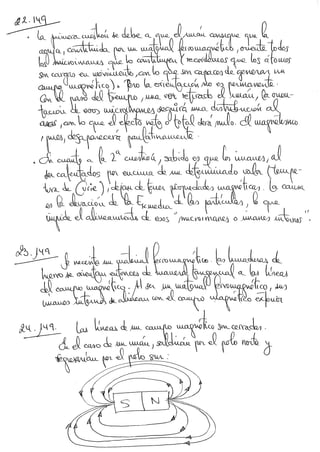 22.149
· La primera cuestión se debe a que el imán consigue que la
aguja, constituida por un material ferromagnético, oriente todos
los microimanes que lo constituyen (recordemos que los átomos
son cargas en movimiento, con lo que son capaces de generar un
campo magnético). Pero la orientación no es permanente.
Con el paso del tiempo, una vez retirado el imán, la orien-
tación de esos microimanes seguirá una distribución al
azar, con lo que el efecto neto o total será nulo. El magnetismo
, pues, desaparecerá paulatinamente.
· En cuanto a la 2ª cuestión, sabido es que los imanes, al
ser calentados por encima de un determinado valor (tempe-
tura de Curie), dejan de tener propiedades magnéticas. La causa
es la elevación de la Ek media de las partículas, lo que
impide el alineamiento de esos "microimanes o imanes internos".
23.149
Se necesita un material ferromagnético. Las limaduras de
hierro se orientan entonces de manera tangencial a las líneas
del campo magnético. Al ser un material ferromagnético, sus
imanes internos se alinean con el campo magnético externo
24.149 Las líneas de un campo magnético son cerradas.
En el caso de un imán, saldrían por el polo norte y
regresarían por el polo sur:
S N